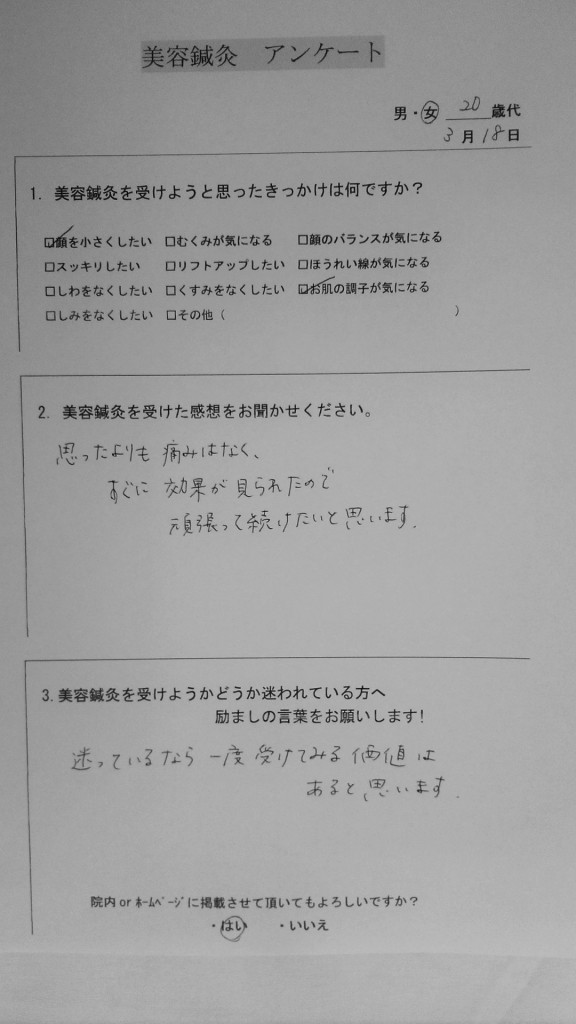 美容鍼灸　アンケート
男・女 20 歳代
3月18日
1. 美容鍼灸を受けようと思ったきっかけは何ですか？
☑顔を小さくしたい □むくみが気になる □顔のバランスが気になる
□スッキリしたい □リフトアップしたい □ほうれい線が気になる
□しわをなくしたい □くすみをなくしたい ☑お肌の調子が気になる
□しみをなくしたい □その他（　　　）
2. 美容鍼灸を受けた感想をお聞かせください。
思ったよりも 痛みはなく、
すぐに 効果が 見られたので
頑張って続けたいと思います.
3.美容鍼灸を受けようかどうか迷われている方へ
励ましの言葉をお願いします！
迷っているなら 一度 受けてみる 価値は
あると 思います.
院内or ﾎｰﾑﾍﾟｰｼﾞに掲載させて頂いてもよろしいですか？
・はい　・いいえ